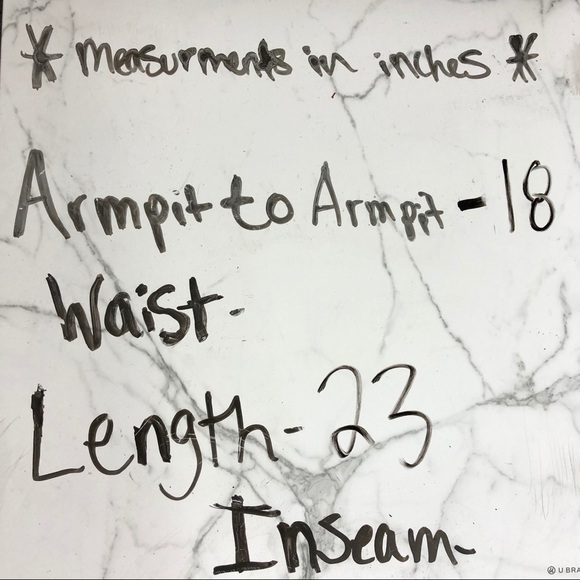 * measurments in inches *
Armpit to Armpit - 18
Waist -
Length - 23
Inseam -